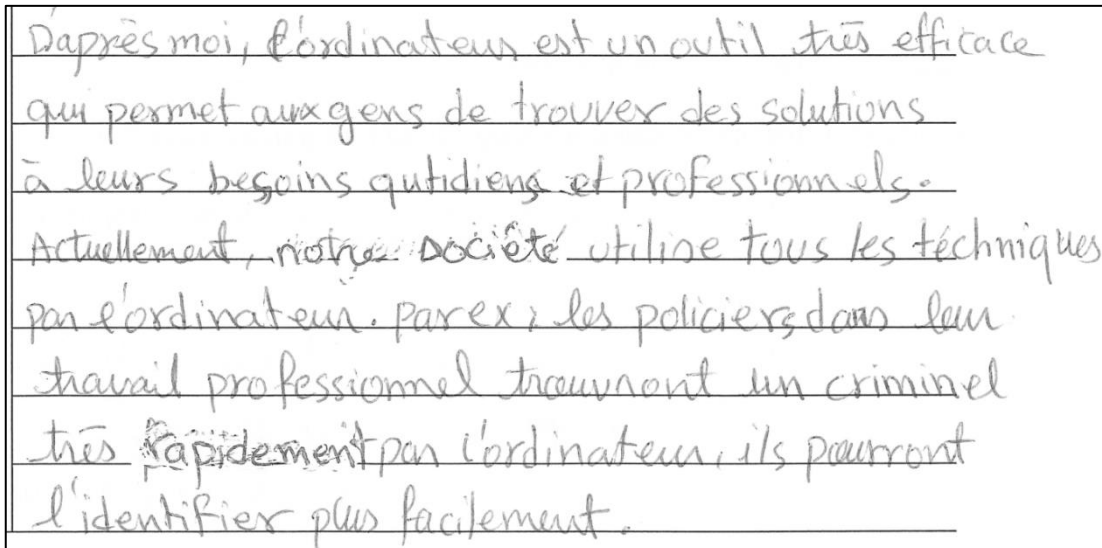 D'après moi, l'ordinateur est un outil très efficace
qui permet aux gens de trouver des solutions
à leurs besoins qutidiens et professionnels.
Actuellement, notre société utilise tous les téchniques
par l'ordinateur. par ex; les policiers, dans leur
travail professionnel trouvront un criminel
très rapidement par l'ordinateur, ils pourront
l'identifier plus facilement.